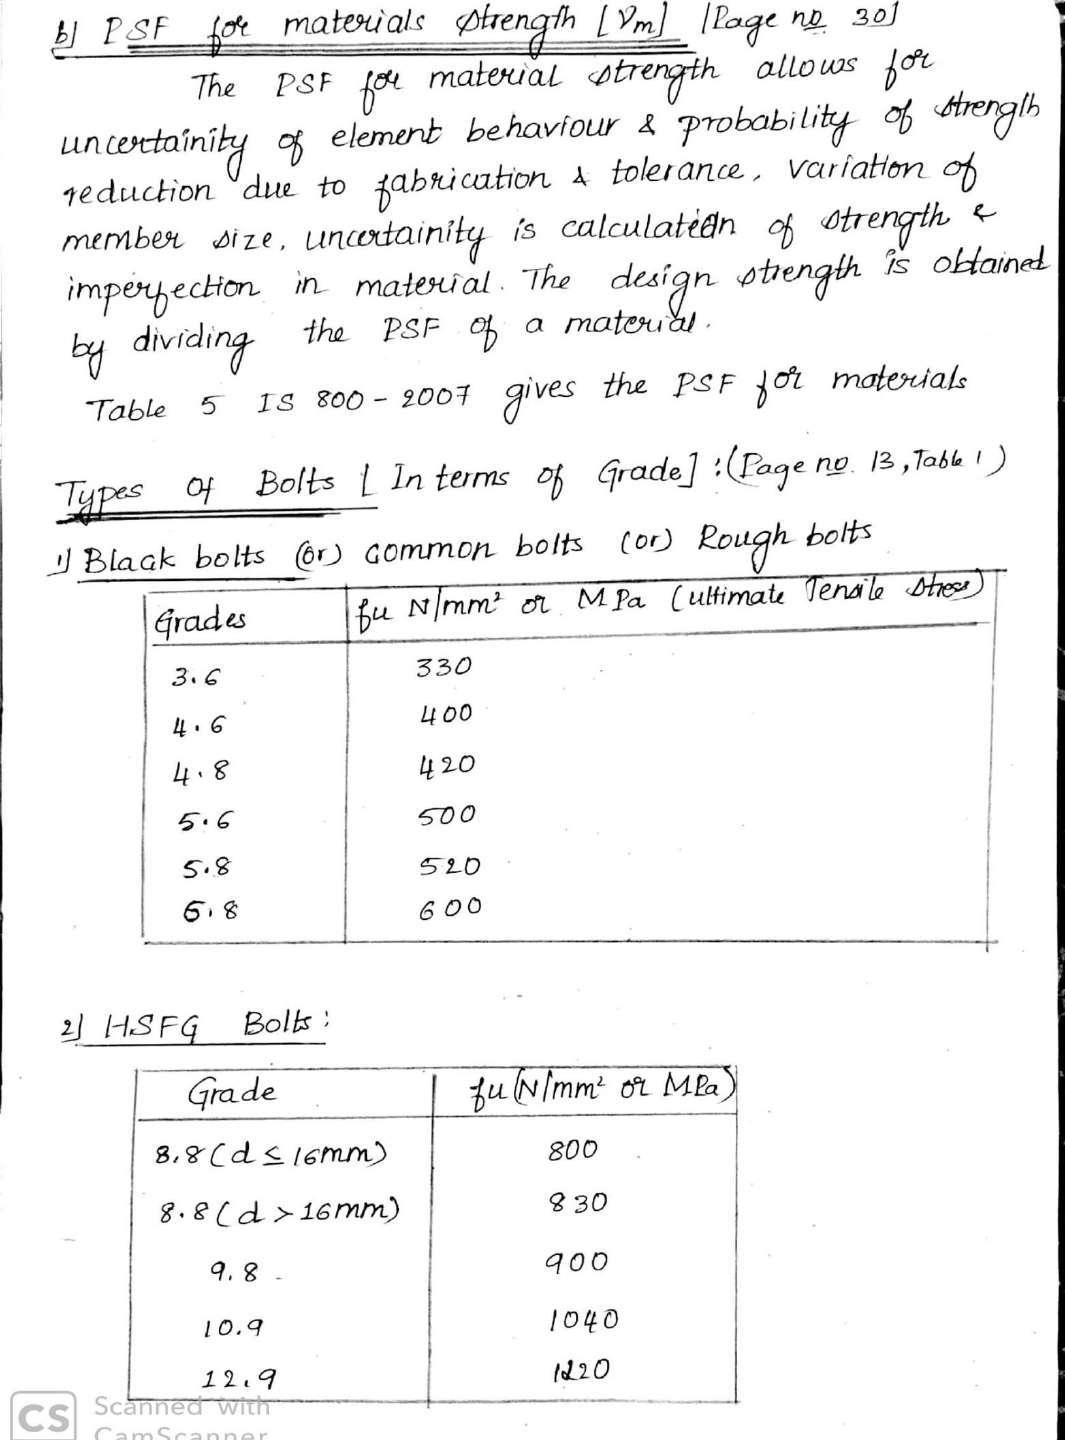 b] PSF for materials strength [γm] [Page no 30]
The PSF for material strength allows for
uncertainity of element behaviour & probability of strength
reduction due to fabrication & tolerance, variation of
member size, uncertainity is calculation of strength &
imperfection in material. The design strength is obtained
by dividing the PSF of a material.
Table 5 IS 800 - 2007 gives the PSF for materials
Types of Bolts [In terms of Grade] : (Page no. 13, Table 1)
1] Black bolts (or) common bolts (or) Rough bolts
Grades fu N/mm² or MPa (ultimate Tensile stress)
3.6 330
4.6 400
4.8 420
5.6 500
5.8 520
6.8 600
2] HSFG Bolts :
Grade fu (N/mm² or MPa)
8.8 (d ≤ 16mm) 800
8.8 (d > 16mm) 830
9.8 900
10.9 1040
12.9 1220
CS Scanned with
CamScanner